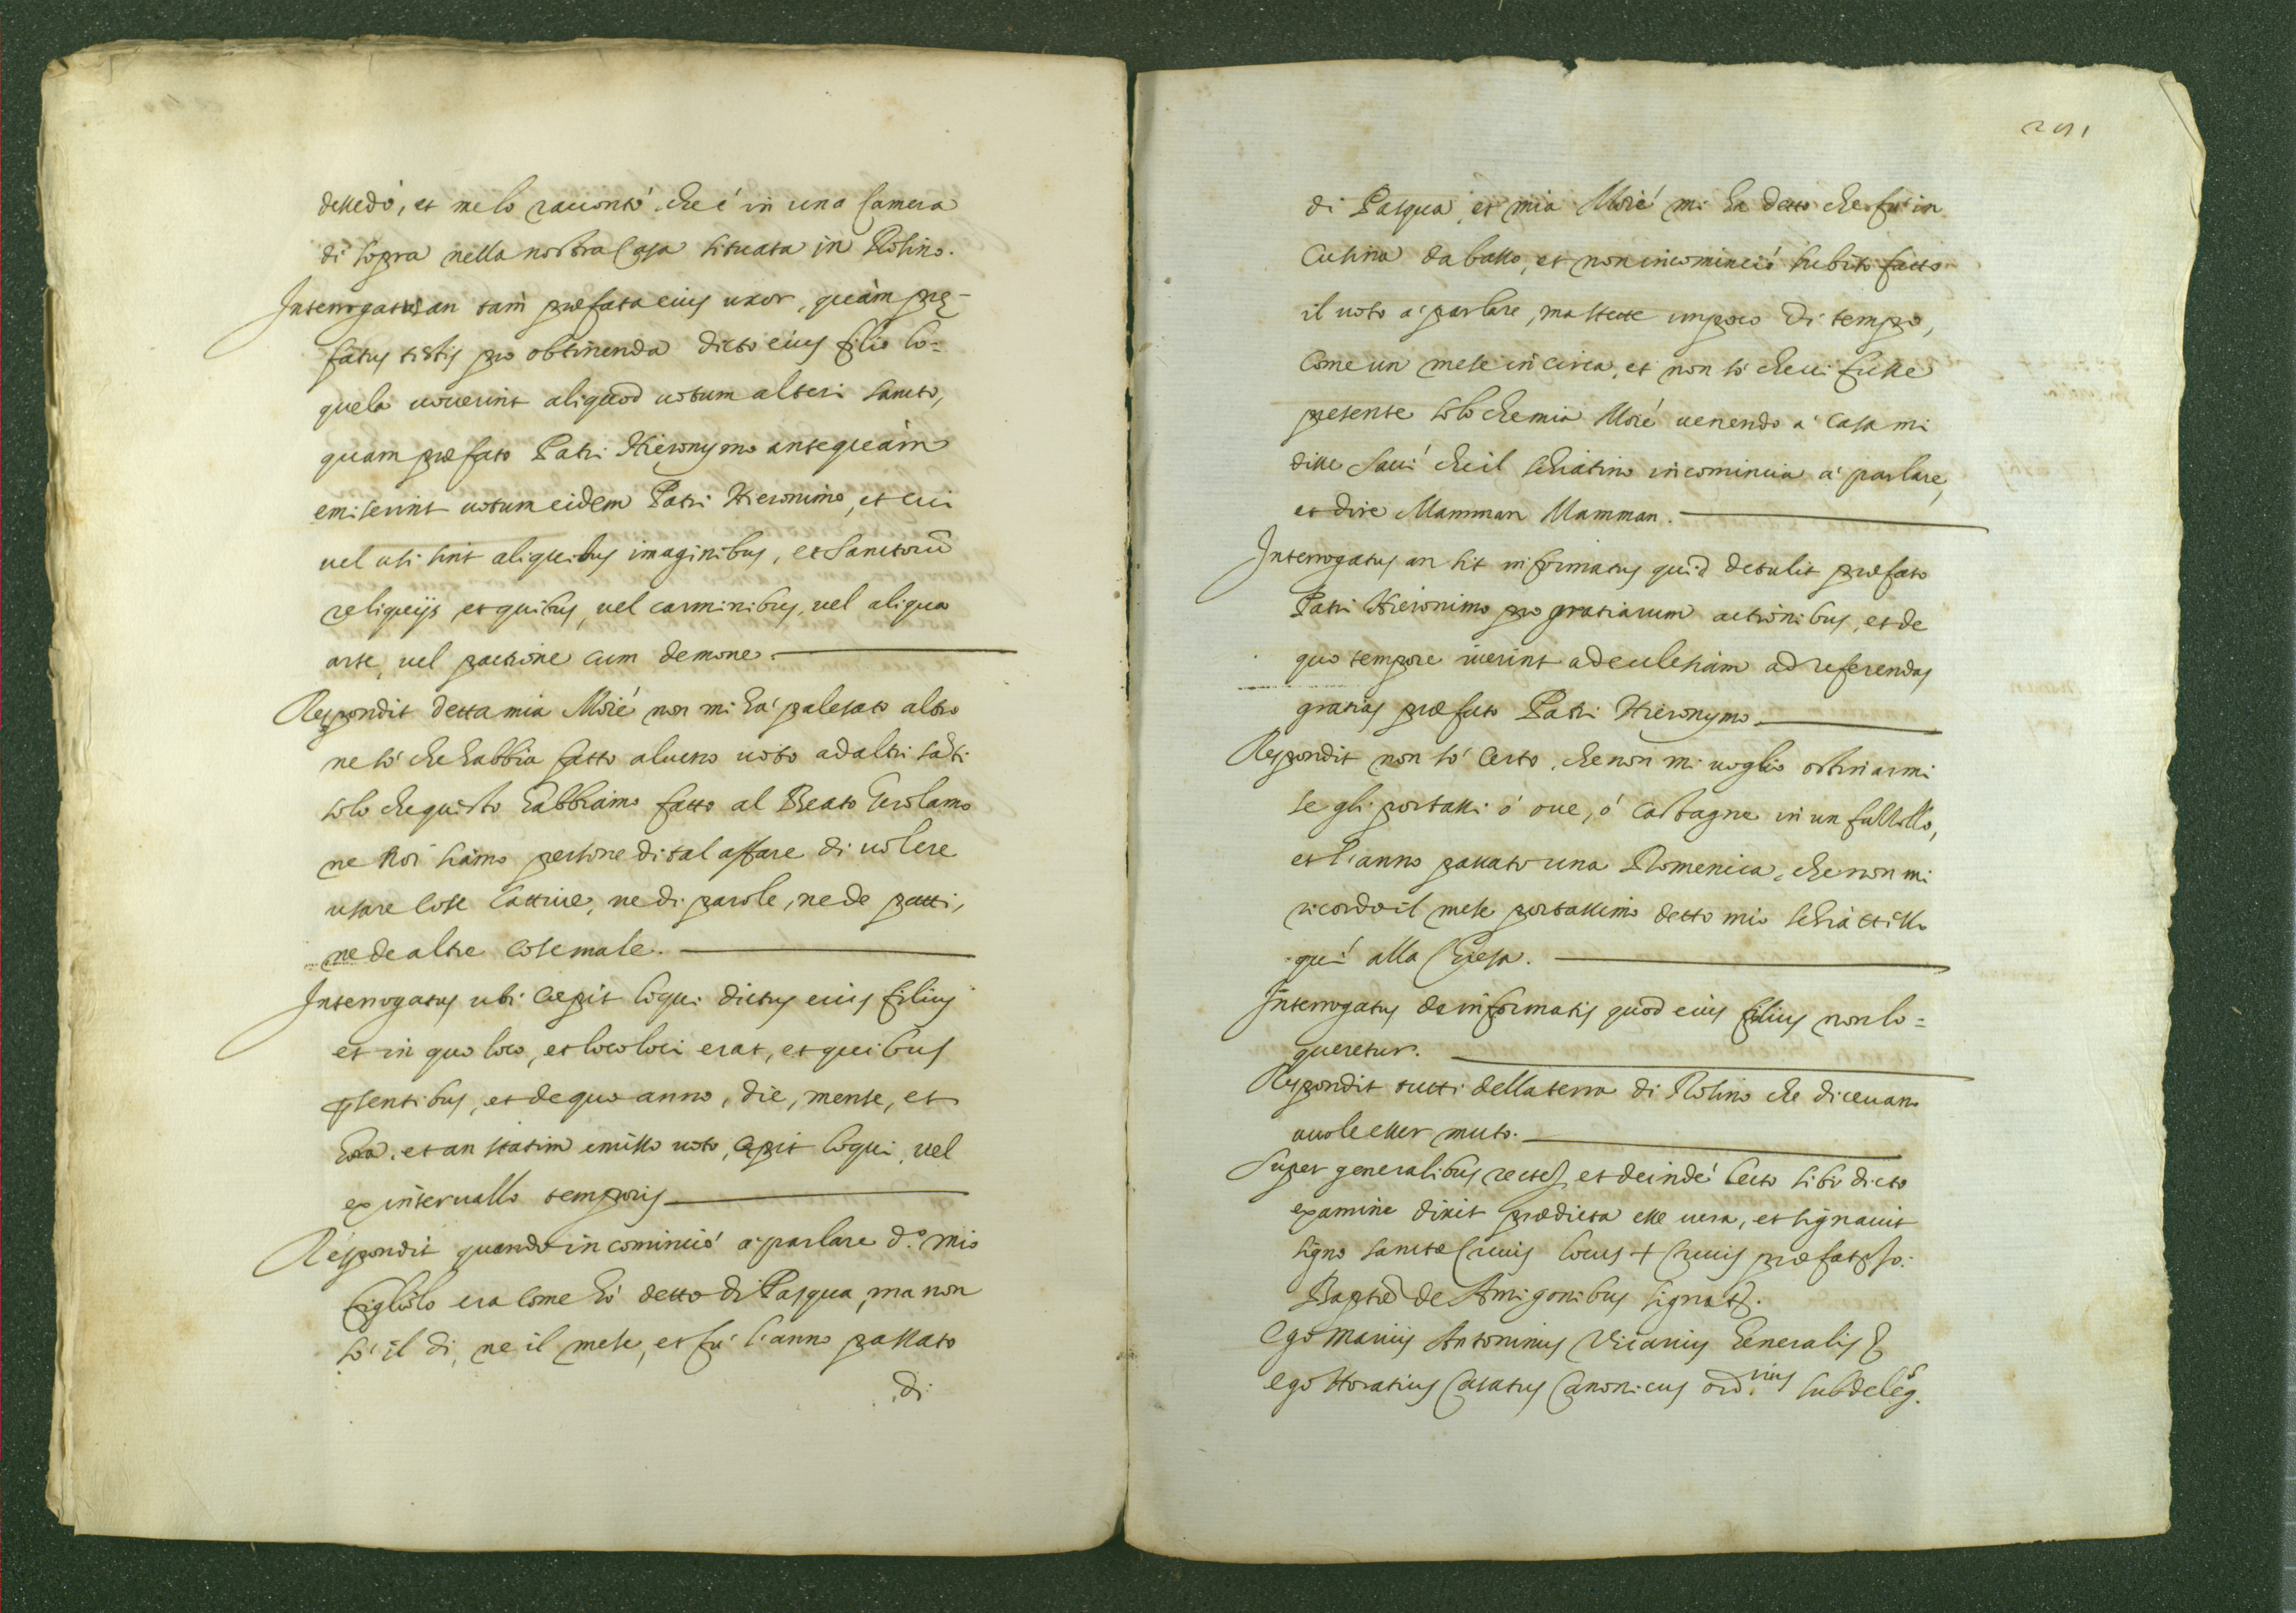 dessedò, et me lo raciontò che è in una Camera
di sopra nella nostra Casa situata in Rosino.
Interrogatus an tam præfata eius uxor, quàm prę-
fatus testis pro obtinenda dicto eius filio lo=
quela uouerint aliquod uotum alteri sancto,
quam præfato Patri Hieronymo antequàm
emiserint uotum eidem Patri Hieronimo, et cui
uel usi sint aliquibus imaginibus, et Sanctorũ
reliquijs et quibus, uel carminibus, uel aliqua
arte, uel pactione cum demone.
Respondit detta mia Moié non mi hà palesato altro
ne sò che habbia fatto alucno uoto ad altri sãti
solo che quisto habbiamo fatto al Beato Gerolamo
ne noi siamo persone di tal affare di uolere
usare cose cattiue, ne di parole, ne de patti,
ne de altre cose male.
Interrogatus ubi cæpit loqui dictus eius filius
et in quo loco, et loco loci erat, et quibus
pñsentibus, et de quo anno, die, mense, et
hora. et an statim emisso uoto, cępit loqui, uel
ex interuallo temporis
Respondit quando incominciò à parlare d.º mio
figliolo era come hò detto di Pasqua, ma non
sò il di, ne il mese, et fù l'anno passato
di
201
di Pasqua, et mia Moié mi ha detto che fu in
Cusina da basso, et non incominciò subito fatto
il uoto à parlare, ma stette un poco di tempo,
Come un mese in circa, et non sò che ui fusse
presente solo che mia Moié uenendo à casa mi
disse Saui che il schiatino incomincia à parlare,
et dire Mamman Mamman.
Interrogatus an sit informatus quid detulit præfato
Patri Hieronimo pro gratiarum actionibus, et de
quo tempore iuerint ad eclesiam ad referendas
gratias præfato Patri Hieronymo
Respondit non sò certo, che non mi uoglio ostinarmi
se gli portassi ò oue, ò castagne in un fassollo,
et l'anno passato una Domenica, che non mi
ricordo il mese portassimo detto mio schiattillo
quì alla Chiesa.
Interrogatus de informatis quod eius filius non lo=
queretur.
Respondit tutti della terra di Rosino che diceuano
uuole esser muto.
Super generalibus recte, et deindè lecto sibi dicto
examine dixit prædicta esse uera, et signauit
signo sanctæ Crucis locus + Crucis præfati Io:
Baptæ de Amigonibus signat.
Ego Marius Antoninus Vicarius Generalis
ego Horatius Casatus Canonicus ord.rius subdeleg.